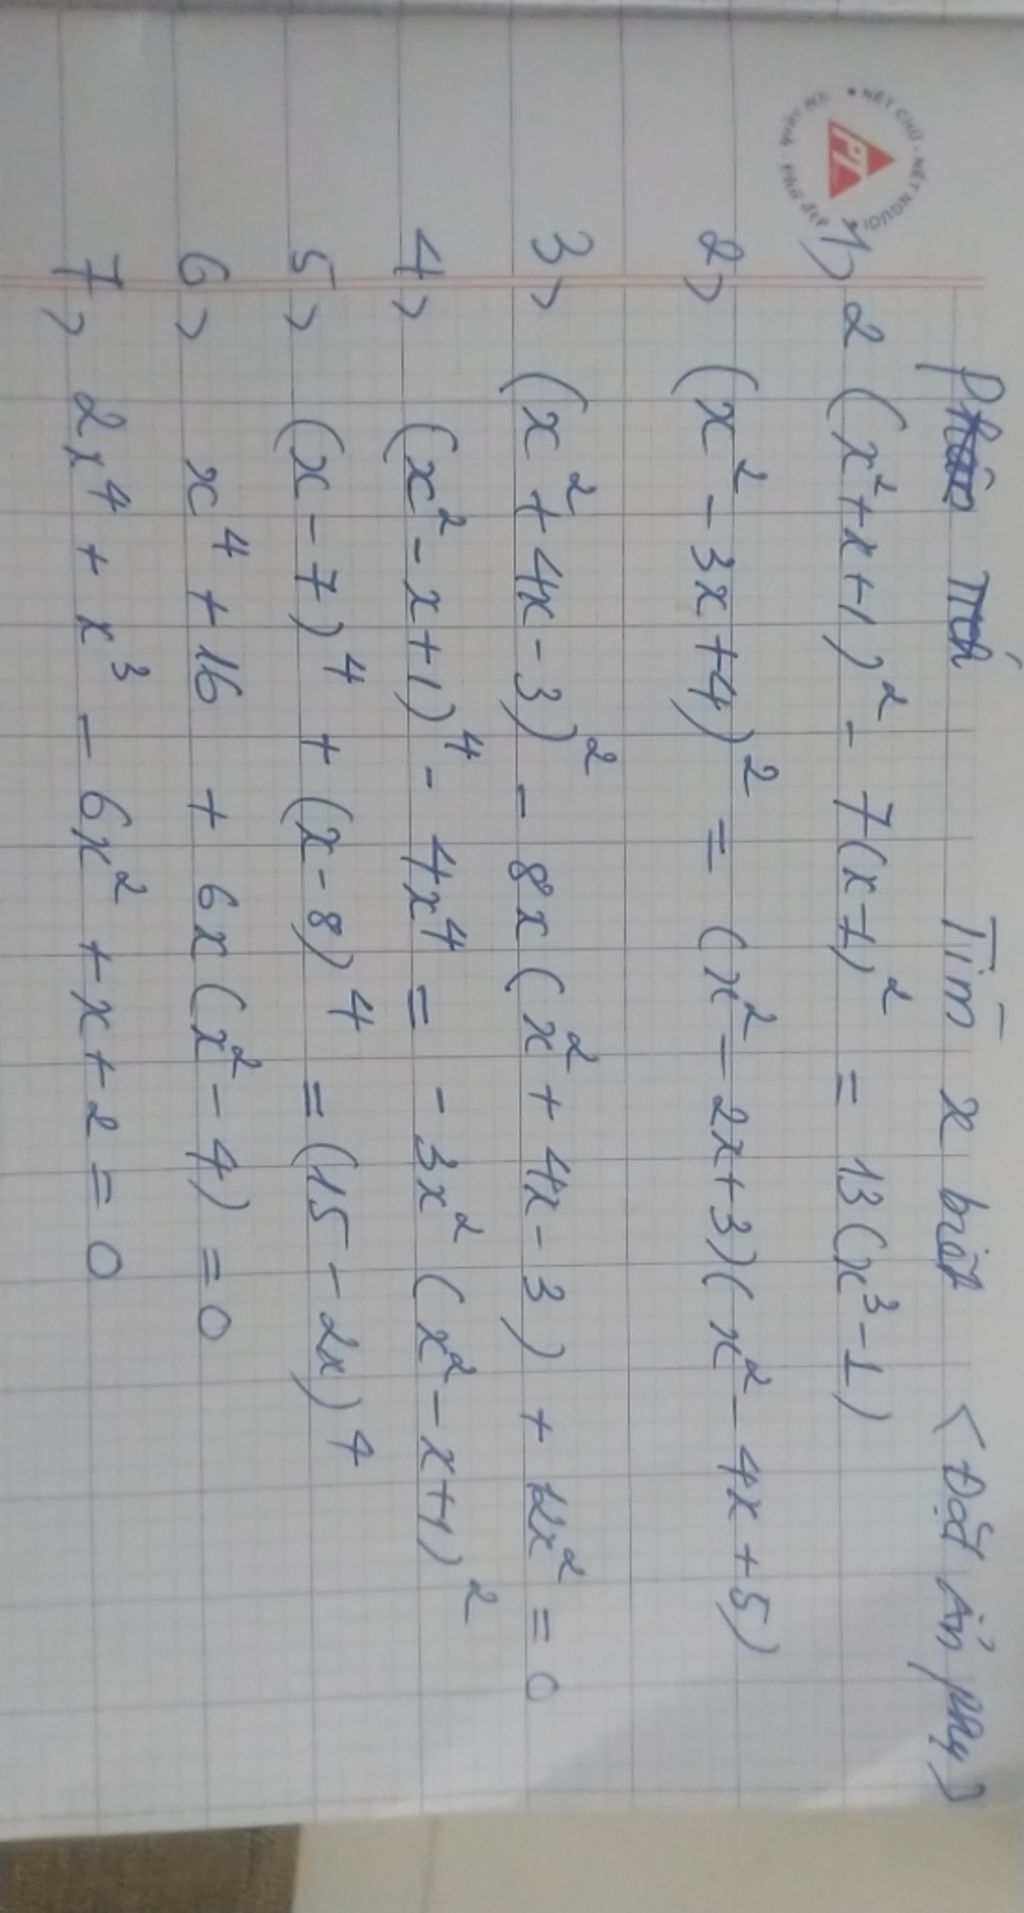 Tìm x biết (Đặt ẩn phụ)
1) 2(x²+x+1)² - 7(x-1)² = 13(x³-1)
2) (x² - 3x + 4)² = (x² - 2x + 3)(x² - 4x + 5)
3) (x² + 4x - 3)² - 8x(x² + 4x - 3) + 12x² = 0
4) (x² - x + 1)⁴ - 4x⁴ = - 3x²(x² - x + 1)²
5) (x - 7)⁴ + (x - 8)⁴ = (15 - 2x)⁴
6) x⁴ + 16 + 6x(x² - 4) = 0
7) 2x⁴ + x³ - 6x² + x + 2 = 0
NÉT CHỮ - NÉT NGƯỜI